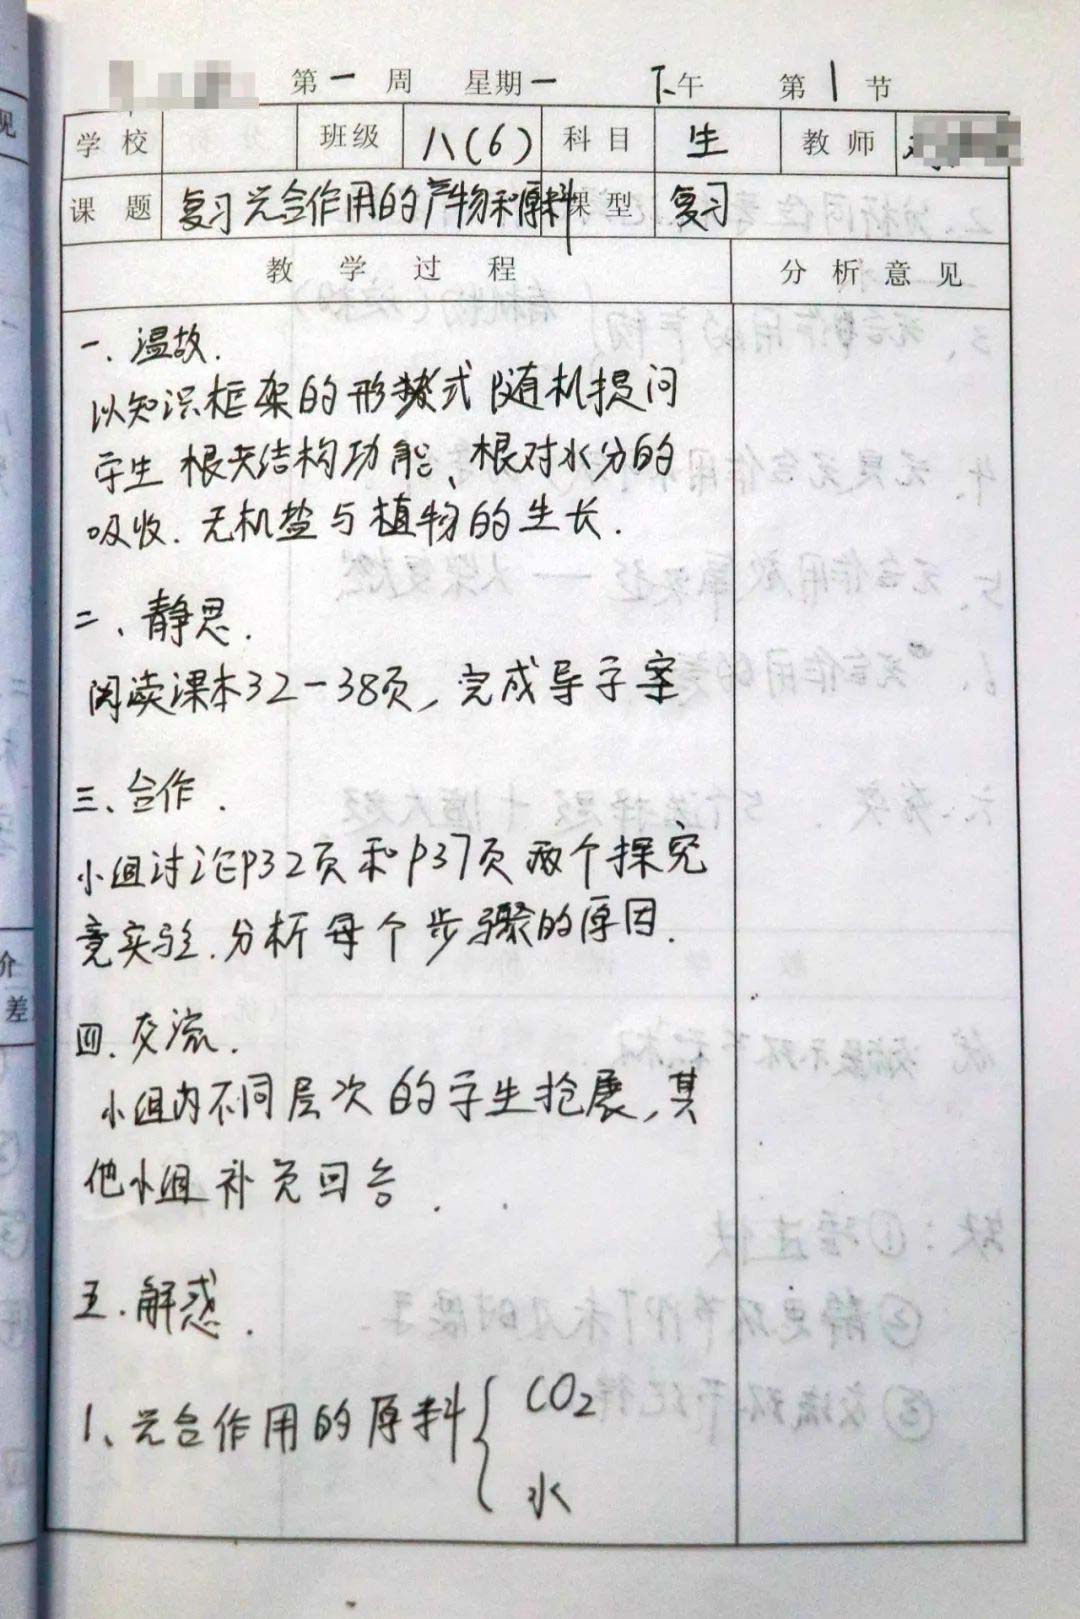 第一周 星期一 下午 第1节
学校 班级 八(6) 科目 生 教师
课题 复习光合作用的产物和原料 课型 复习
教学过程 分析意见
一.温故.
以知识框架的形式随机提问
学生根尖结构功能、根对水分的
吸收.无机盐与植物的生长.
二、静思.
阅读课本32-38页,完成导学案
三、合作.
小组讨论P32页和P37页两个探究
竟实验.分析每个步骤的原因.
四.交流.
小组内不同层次的学生抢展,其
他小组补充回答.
五.解惑.
1、光合作用的原料{CO₂
水